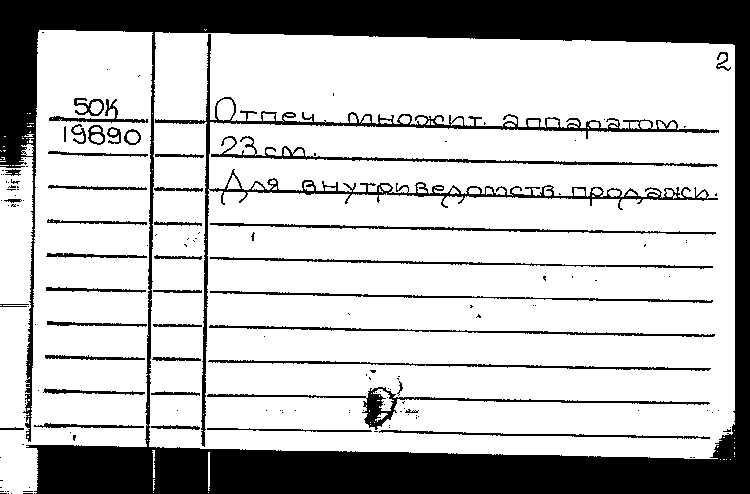 2
50К Отпеч. множит. аппаратом.
19890 23 см.
Для внутриведомств. продажи.